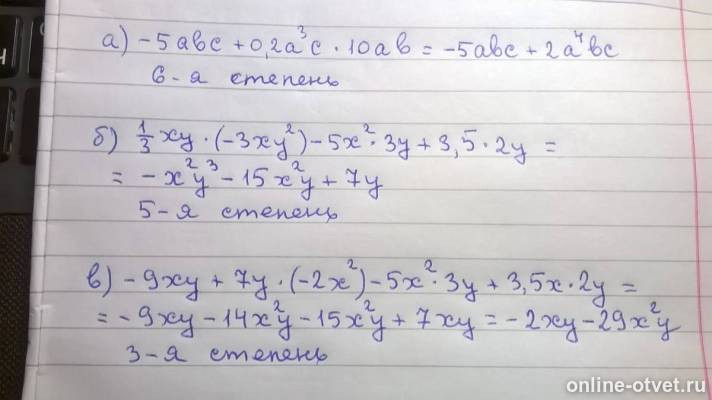 а) -5abc + 0,2a³c · 10ab = -5abc + 2a⁴bc
6-я степень
б) 1/3 xy · (-3xy²) - 5x² · 3y + 3,5 · 2y =
= -x²y³ - 15x²y + 7y
5-я степень
в) -9xy + 7y · (-2x²) - 5x² · 3y + 3,5x · 2y =
= -9xy - 14x²y - 15x²y + 7xy = -2xy - 29x²y
3-я степень
online-otvet.ru